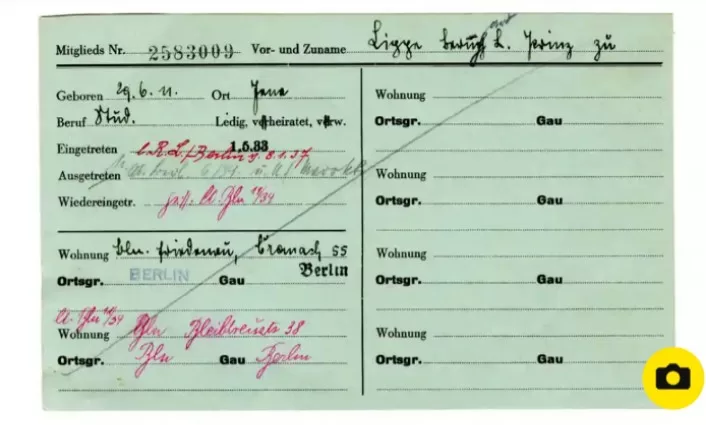 Mitglieds Nr. 2583009 Vor- und Zuname Lippe Prinz zu
Geboren 29.6.11. Ort Jena
Beruf Stud. Ledig, verheiratet, verw.
Eingetreten 1.5.33
l. R. L./Berlin v. 8.1.37
Ausgetreten
Wiedereingetr.
Wohnung Bln. Friedenau, Cranach 55
Ortsgr. BERLIN Gau Berlin
Wohnung Bln Bleibtreustr 38
Ortsgr. Bln Gau Berlin
Wohnung
Ortsgr. Gau
Wohnung
Ortsgr. Gau
Wohnung
Ortsgr. Gau
Wohnung
Ortsgr. Gau